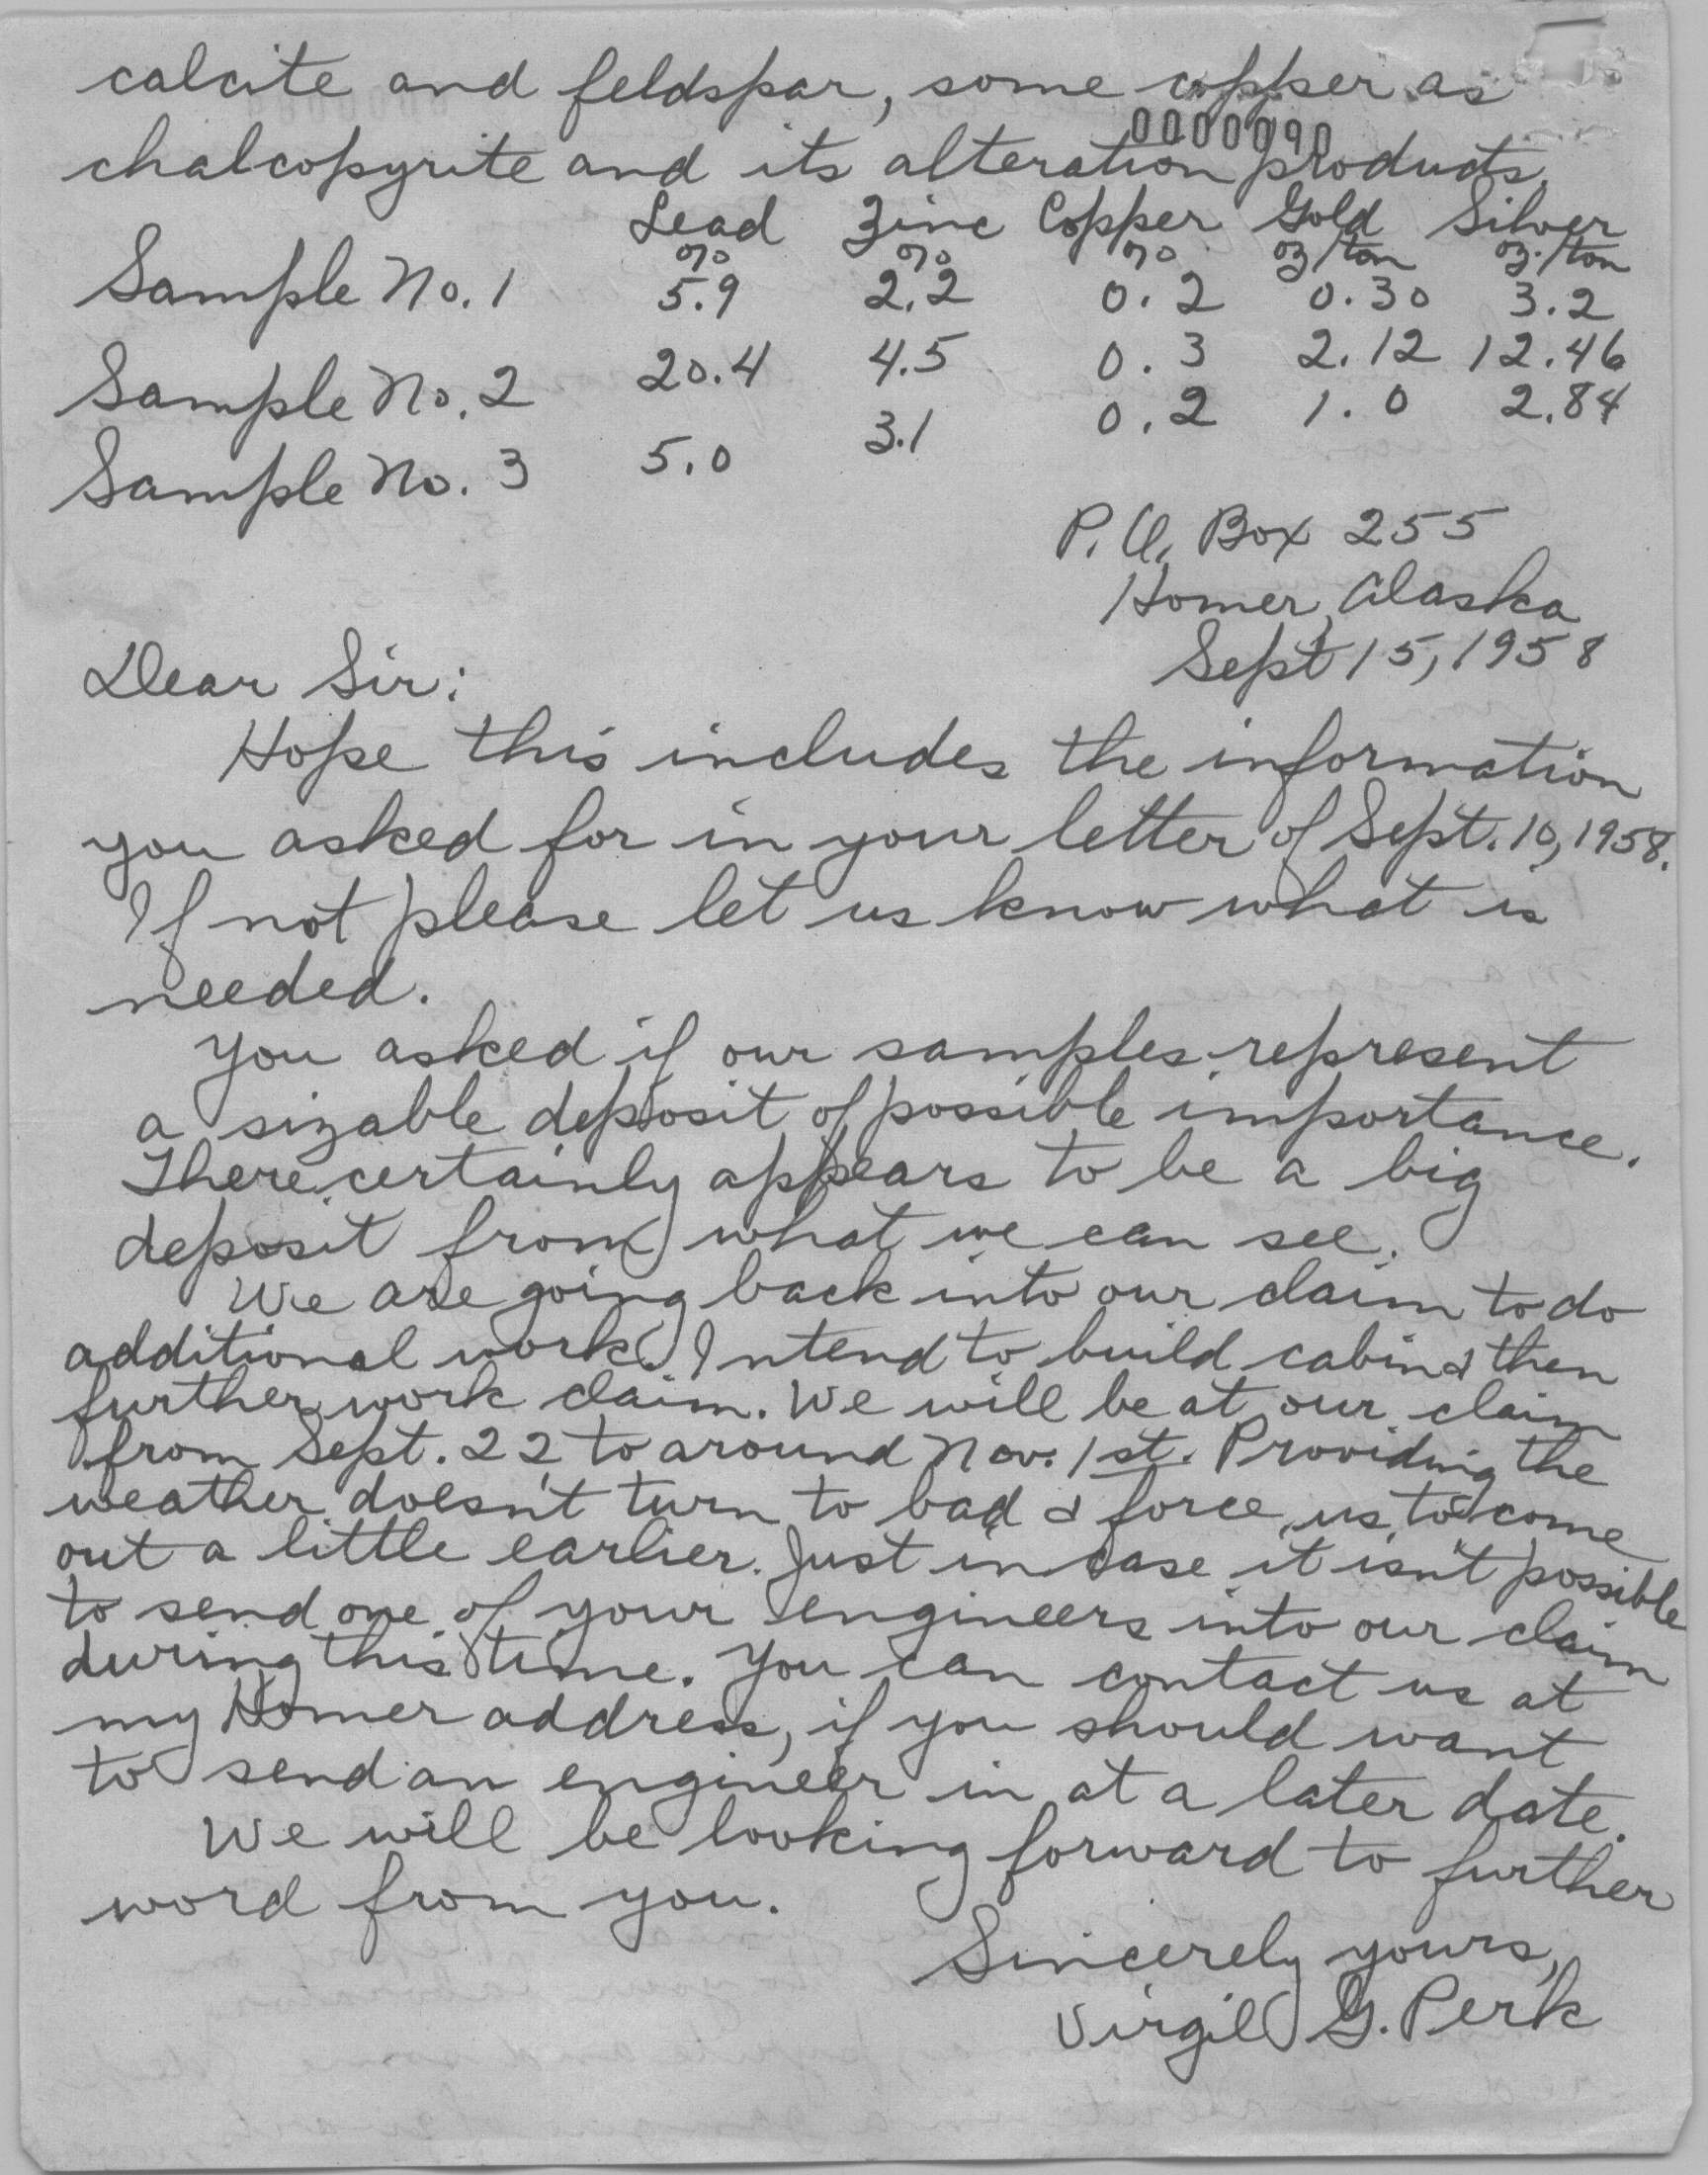 calcite and feldspar, some copper as
0000090
chalcopyrite and its alteration products.
Lead Zinc Copper Gold Silver
% % % oz/ton oz./ton
Sample No. 1 5.9 2.2 0.2 0.30 3.2
Sample No. 2 20.4 4.5 0.3 2.12 12.46
Sample No. 3 5.0 3.1 0.2 1.0 2.84
P.O. Box 255
Homer, Alaska
Sept 15, 1958
Dear Sir:
Hope this includes the information
you asked for in your letter of Sept. 10, 1958.
If not please let us know what is
needed.
You asked if our samples represent
a sizable deposit of possible importance.
There certainly appears to be a big
deposit from what we can see.
We are going back into our claim to do
additional work. Intend to build cabin & then
further work claim. We will be at our claim
from Sept. 22 to around Nov. 1st. Providing the
weather doesn't turn to bad & force us to come
out a little earlier. Just in case it isn't possible
to send one of your engineers into our claim
during this time. You can contact us at
my Homer address, if you should want
to send an engineer in at a later date.
We will be looking forward to further
word from you.
Sincerely yours,
Virgil G. Perk